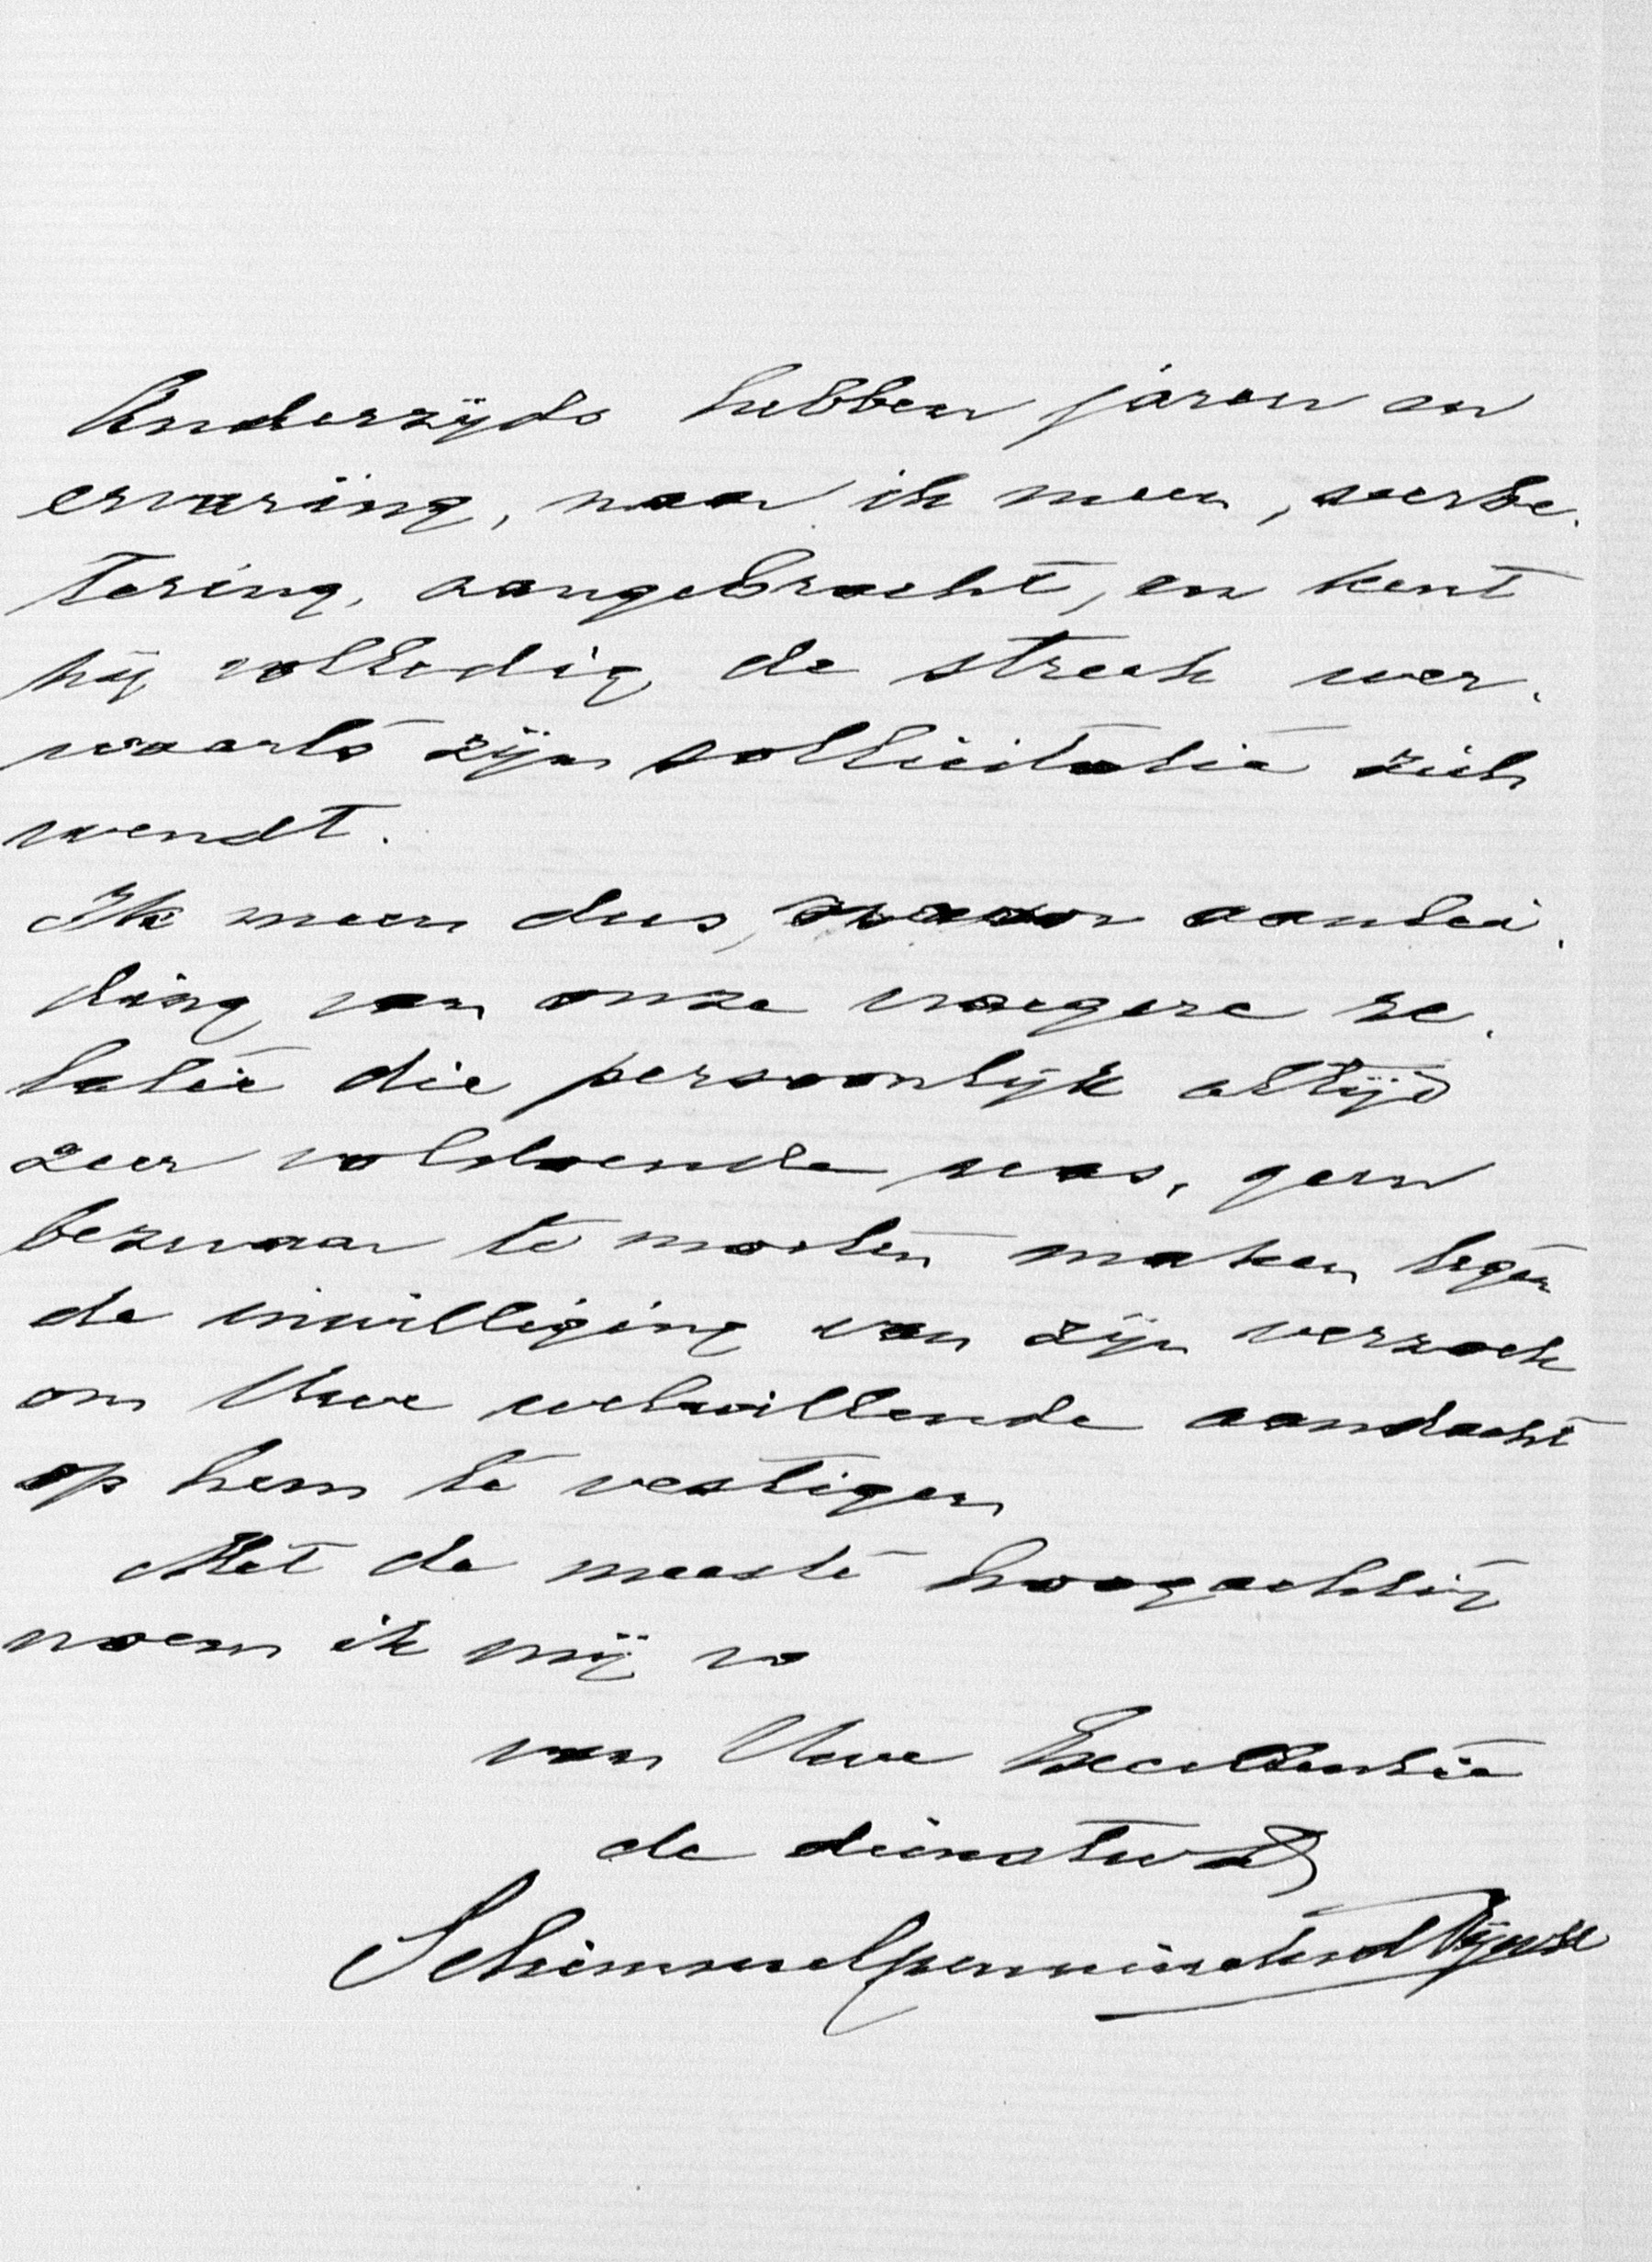 Anderzijds hebben jaren en
ervaring, naar ik meen, verbe-
tering, aangebracht, en kent
hij volledig de streek wer-
waarts zijn sollicitatie zich
wendt.
Ik meen dus, naar aanlei-
ding van onze vroegere re-
latie die persoonlijk altijd
zeer voldoende was, geen
bezwaar te moeten maken tegen
de inwilliging van zijn verzoek
om Uwe welwillende aandacht
op hem te vestigen
Met de meeste hoogachting
noem ik mij
van Uwe Excellentie
de dienstw
Schimmelpenninck